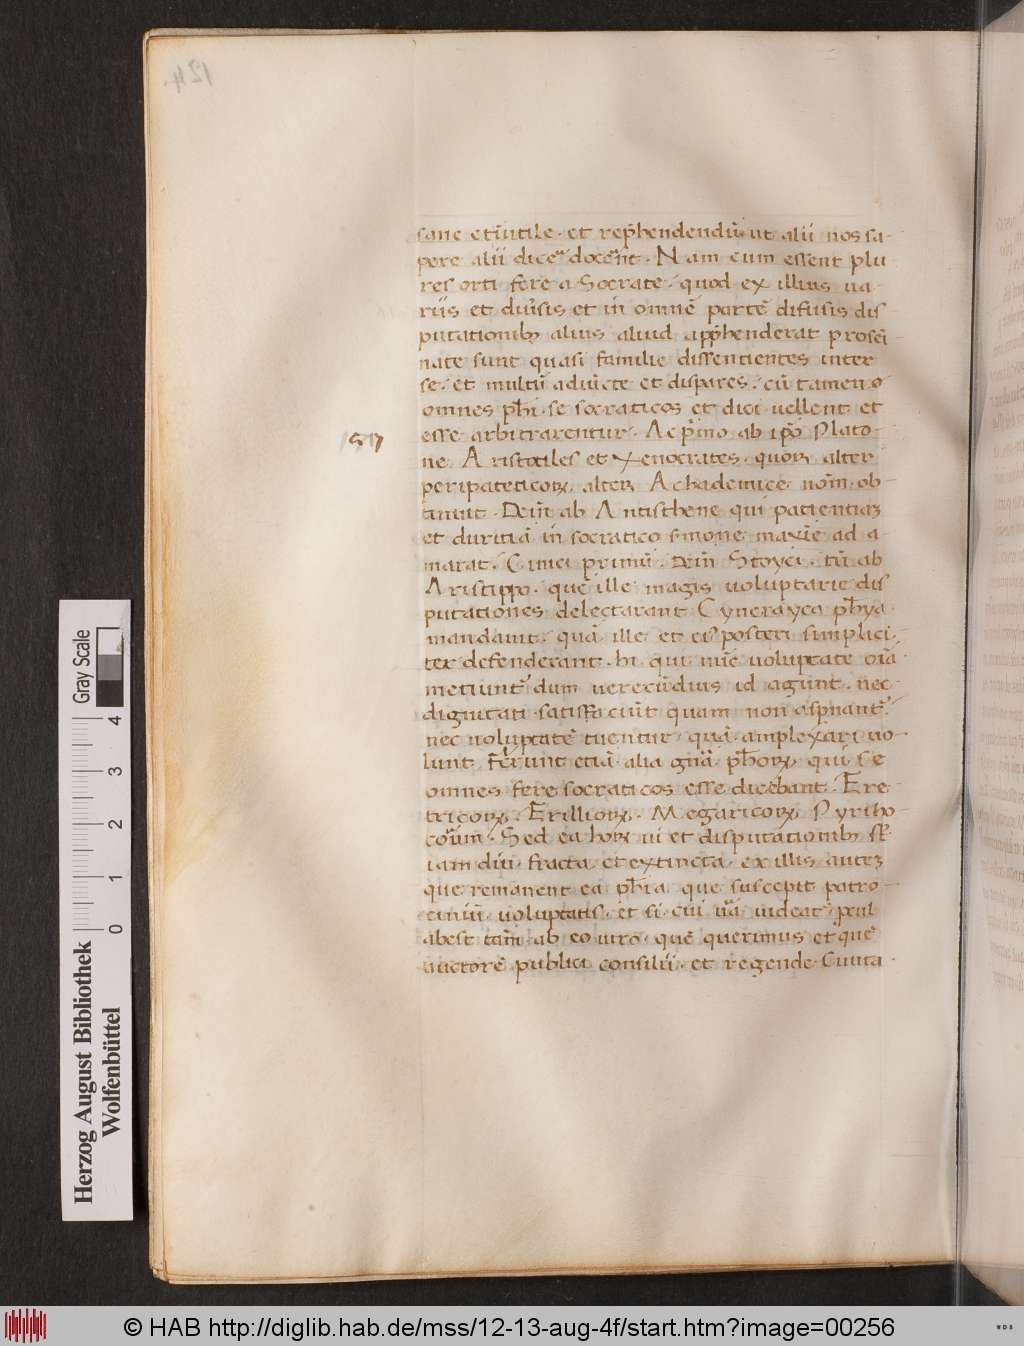 124.
sane et īutile · et rep̄hendendū ut alii nos sa-
pere alii dice docēnt · Nam cum essent plu
res orti fere a Socrate · quod ex illius ua-
riis et diuīsis et in omnē partē difusis dis
putationibꝫ alius aliud app̄henderat proseī-
nate sunt quasi familie dissentientes inter
se · et multū adiūcte et dispares · cū tamen o
omnes ph̄i · se socraticos et dici uellent et
esse arbitrarentur · Ac p̄mo ab ip̄o Plato-
ne Aristotiles et Xenocrates · quoꝝ alter
peripateticoꝝ, alter Achademice nom̄ ob-
tinuit · Dein̄ ab Antisthene qui patientiaꝫ
et duritiā in socratico s̄mone maxīe ad a-
marat · Cinici primū · Dein̄ Stoyci · tū ab
Aristippo · quē ille magis uoluptarie dis
putationes delectarant Cynerayca ph̄ya
mandauit · quā ille et eis posteri simplici,
ter defenderant · hi qui nūc uoluptate oīa
metiunt dum uerecūdius id agūnt · nec
dignitati satisfaciūt quam non asp̄nant
nec uoluptatē tuentur quā amplexari uo
lunt fūerunt etiā alia gn̄a ph̄oꝝ, qui se
omnes fere socraticos esse dicebant · Ere-
tricoꝝ, Erillioꝝ · Megaricoꝝ, Pyrrho-
coꝝum · Sed ea hoꝝ ui et disputationibꝫ st̄
iam diu fracta et extincta · ex illis autez
que remanent ea ph̄ia que suscepit patro-
ciniū · uoluptatis · et si cui uā uideat p̄cul
abest tam̄ · ab eo uiro · quē querimus et quē
auctorē publici consilii · et regende Ciuita ·
Herzog August Bibliothek
Wolfenbüttel
Gray Scale
0 1 2 3 4
© HAB http://diglib.hab.de/mss/12-13-aug-4f/start.htm?image=00256